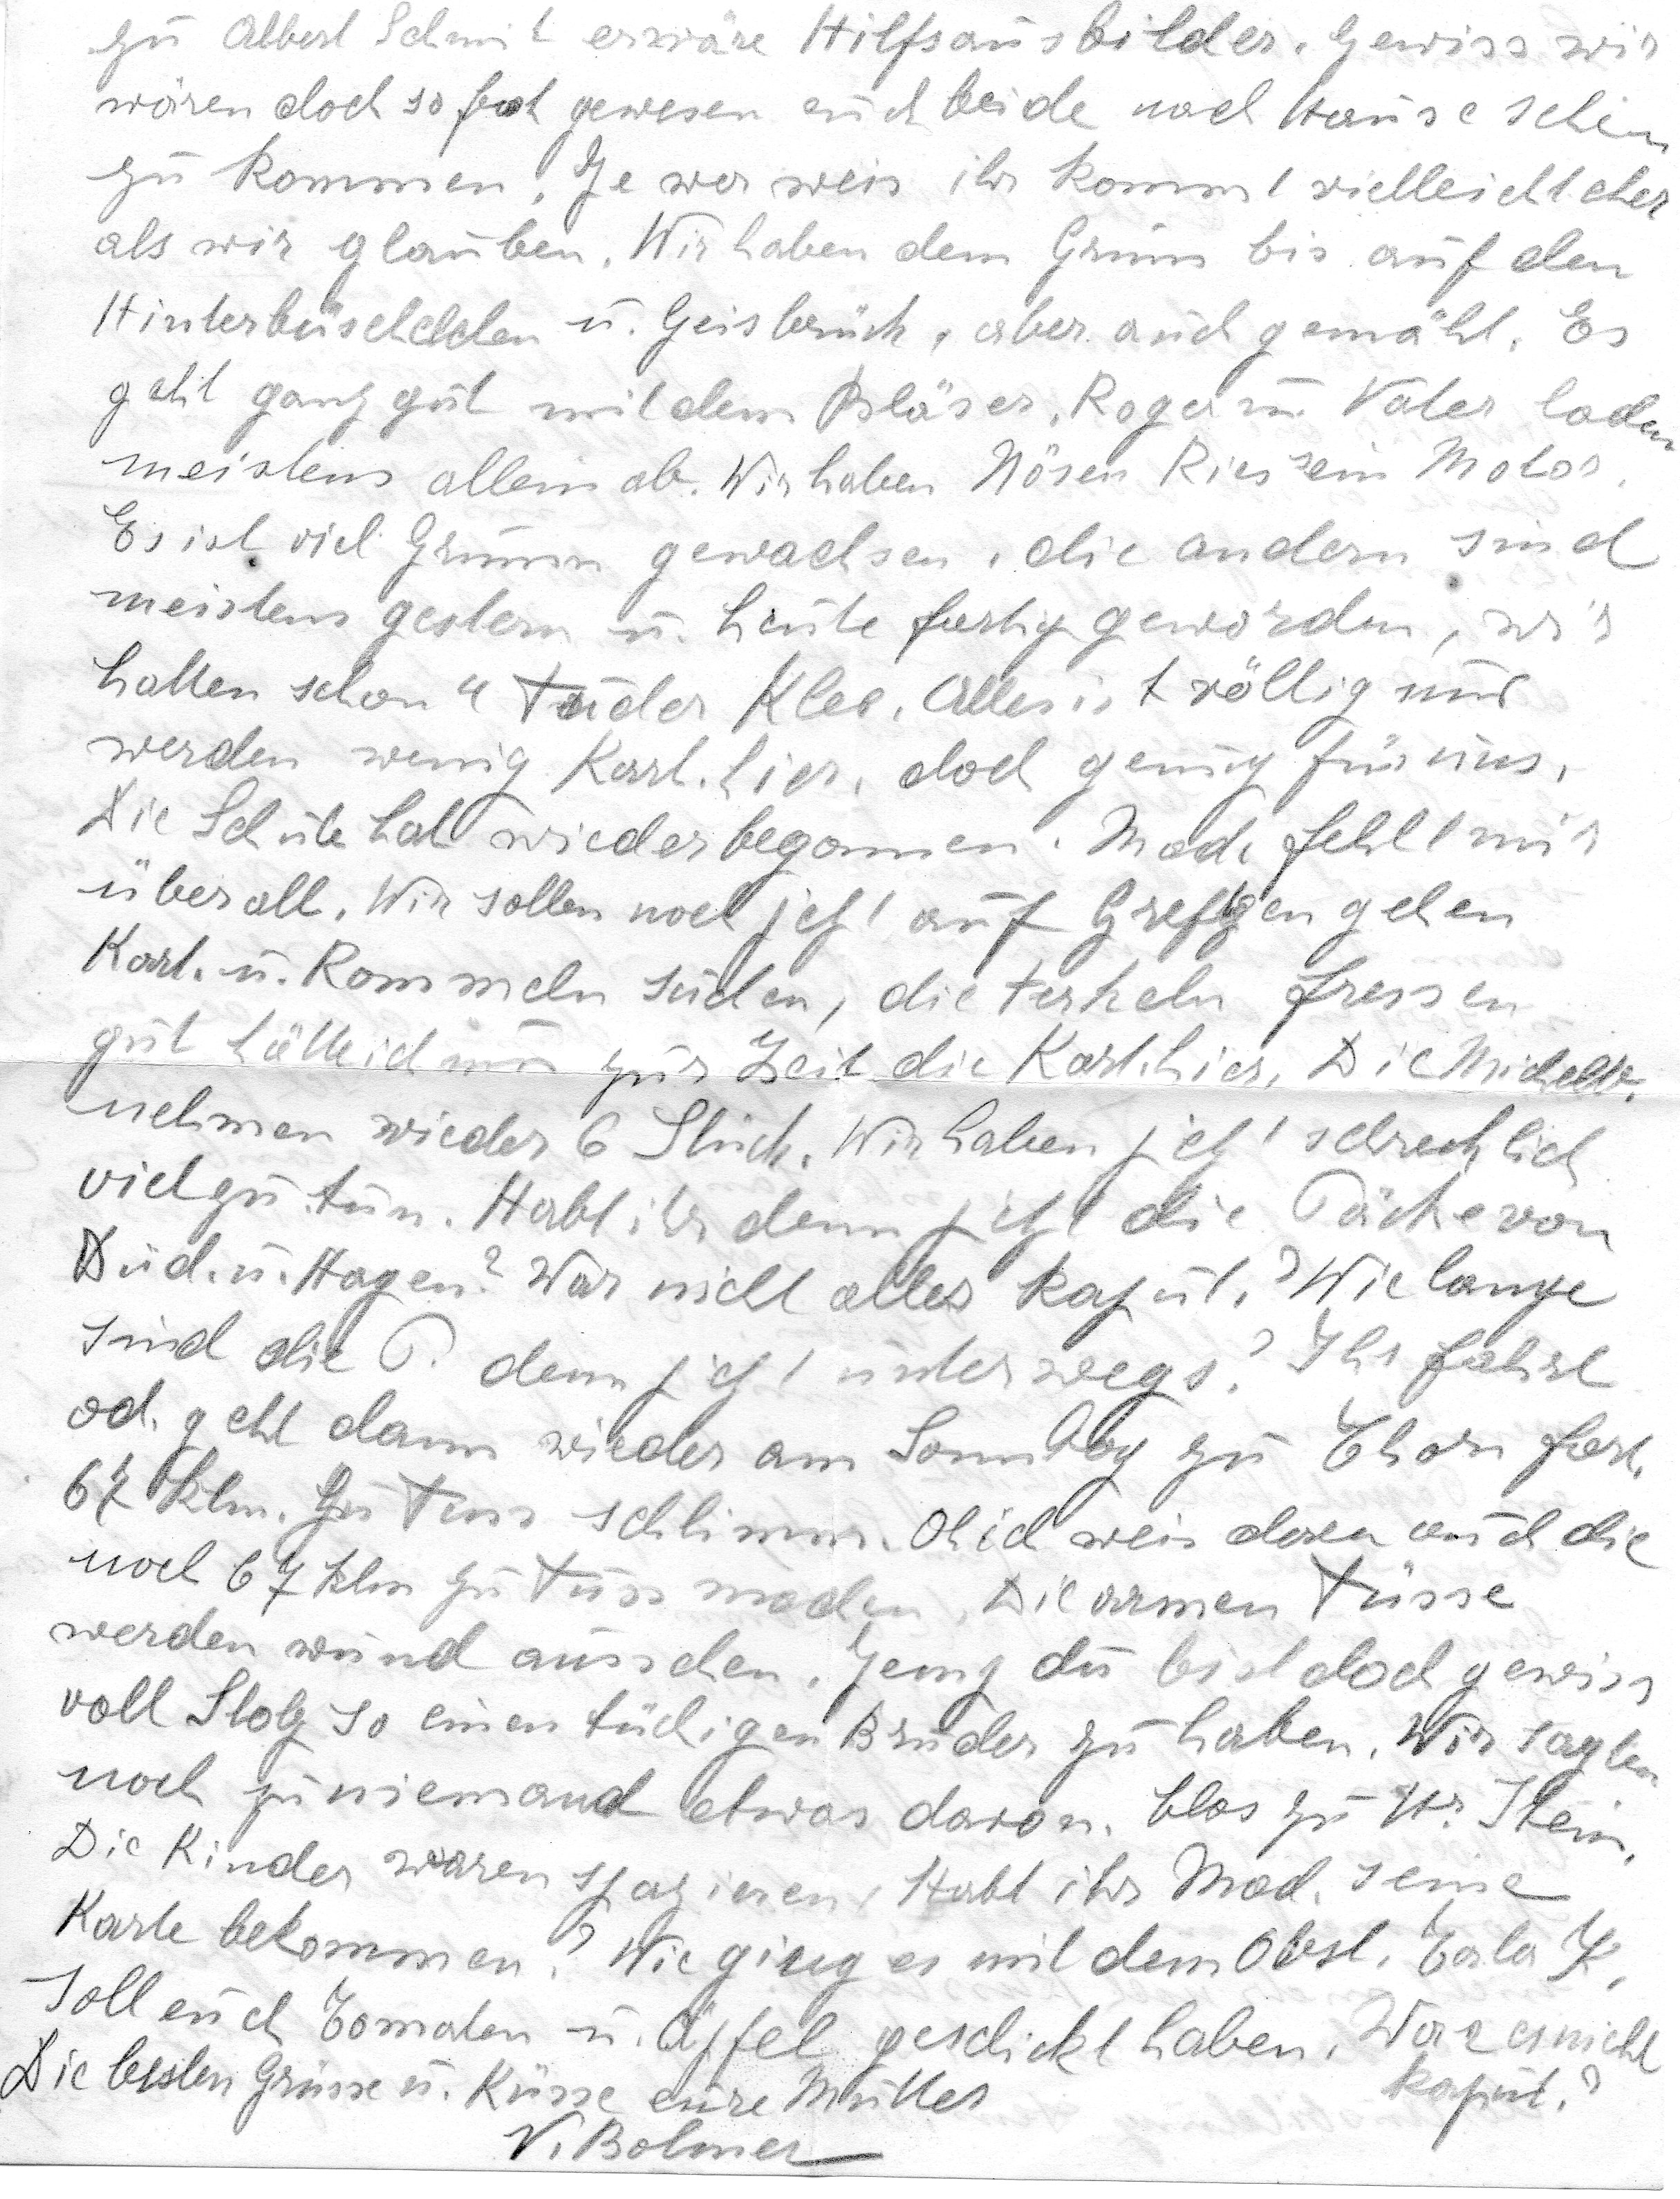 zu Albert Schmit er wäre Hilfsausbilder. Gewiss wir
wären doch so froh gewesen euch beide nach Hause sehen
zu kommen. Je wer weis ihr kommt vielleicht eher
als wir glauben. Wir haben dem Grum bis auf den
Hinterbüschelchen u. Geisbrück, aber auch gemäht. Es
geht ganz gut mit dem Bläser. Roger u. Vater laden
meistens allein ab. Wir haben Nösen Ries sein Motor.
Es ist viel Grumm gewachsen, die andern sind
meistens gestern u. heute fertig geworden, wir
hatten schon 4 Fuder Klee. Alles ist völlig nur
werden wenig Kart. hier, doch genug für uns.
Die Schule hat wieder begonnen. Mad. fehlt mir
überall. Wir sollen noch jetzt auf gehen
Kart. u. Rommeln suchen, die Ferkeln fressen
gut hätte ich nur zur Zeit die Kart. hier. Die
nehmen wieder 6 Stück. Wir haben jetzt schrecklich
viel zu tun. Habt ihr denn jetzt die Päcke von
Dud. u. Hagen? War nicht alles kaput? Wie lange
sind die P. denn jetzt unterwegs? Ihr fahrt
od. geht dann wieder am Sonntag zu Thorn fort.
67 Klm. zu Fuss schlimm. Oh ich weis doch auch die
noch 67 klm zu Fuss machen. Die armen Füsse
werden wund aussehen. Jeng du bist doch gewiss
voll Stolz so einen tüchigen Bruder zu haben. Wir sagten
noch zu niemand etwas davon. blos zu Hr. Stein.
Die Kinder waren spazieren, Habt ihr Mad. seine
Karte bekommen? Wie gieng es mit dem Obst. K.
soll euch Tomaten u. Äpfel geschickt haben. War es nicht
kaput?
Die besten Grüsse u. Küsse eure Mutter
V. Bolmer